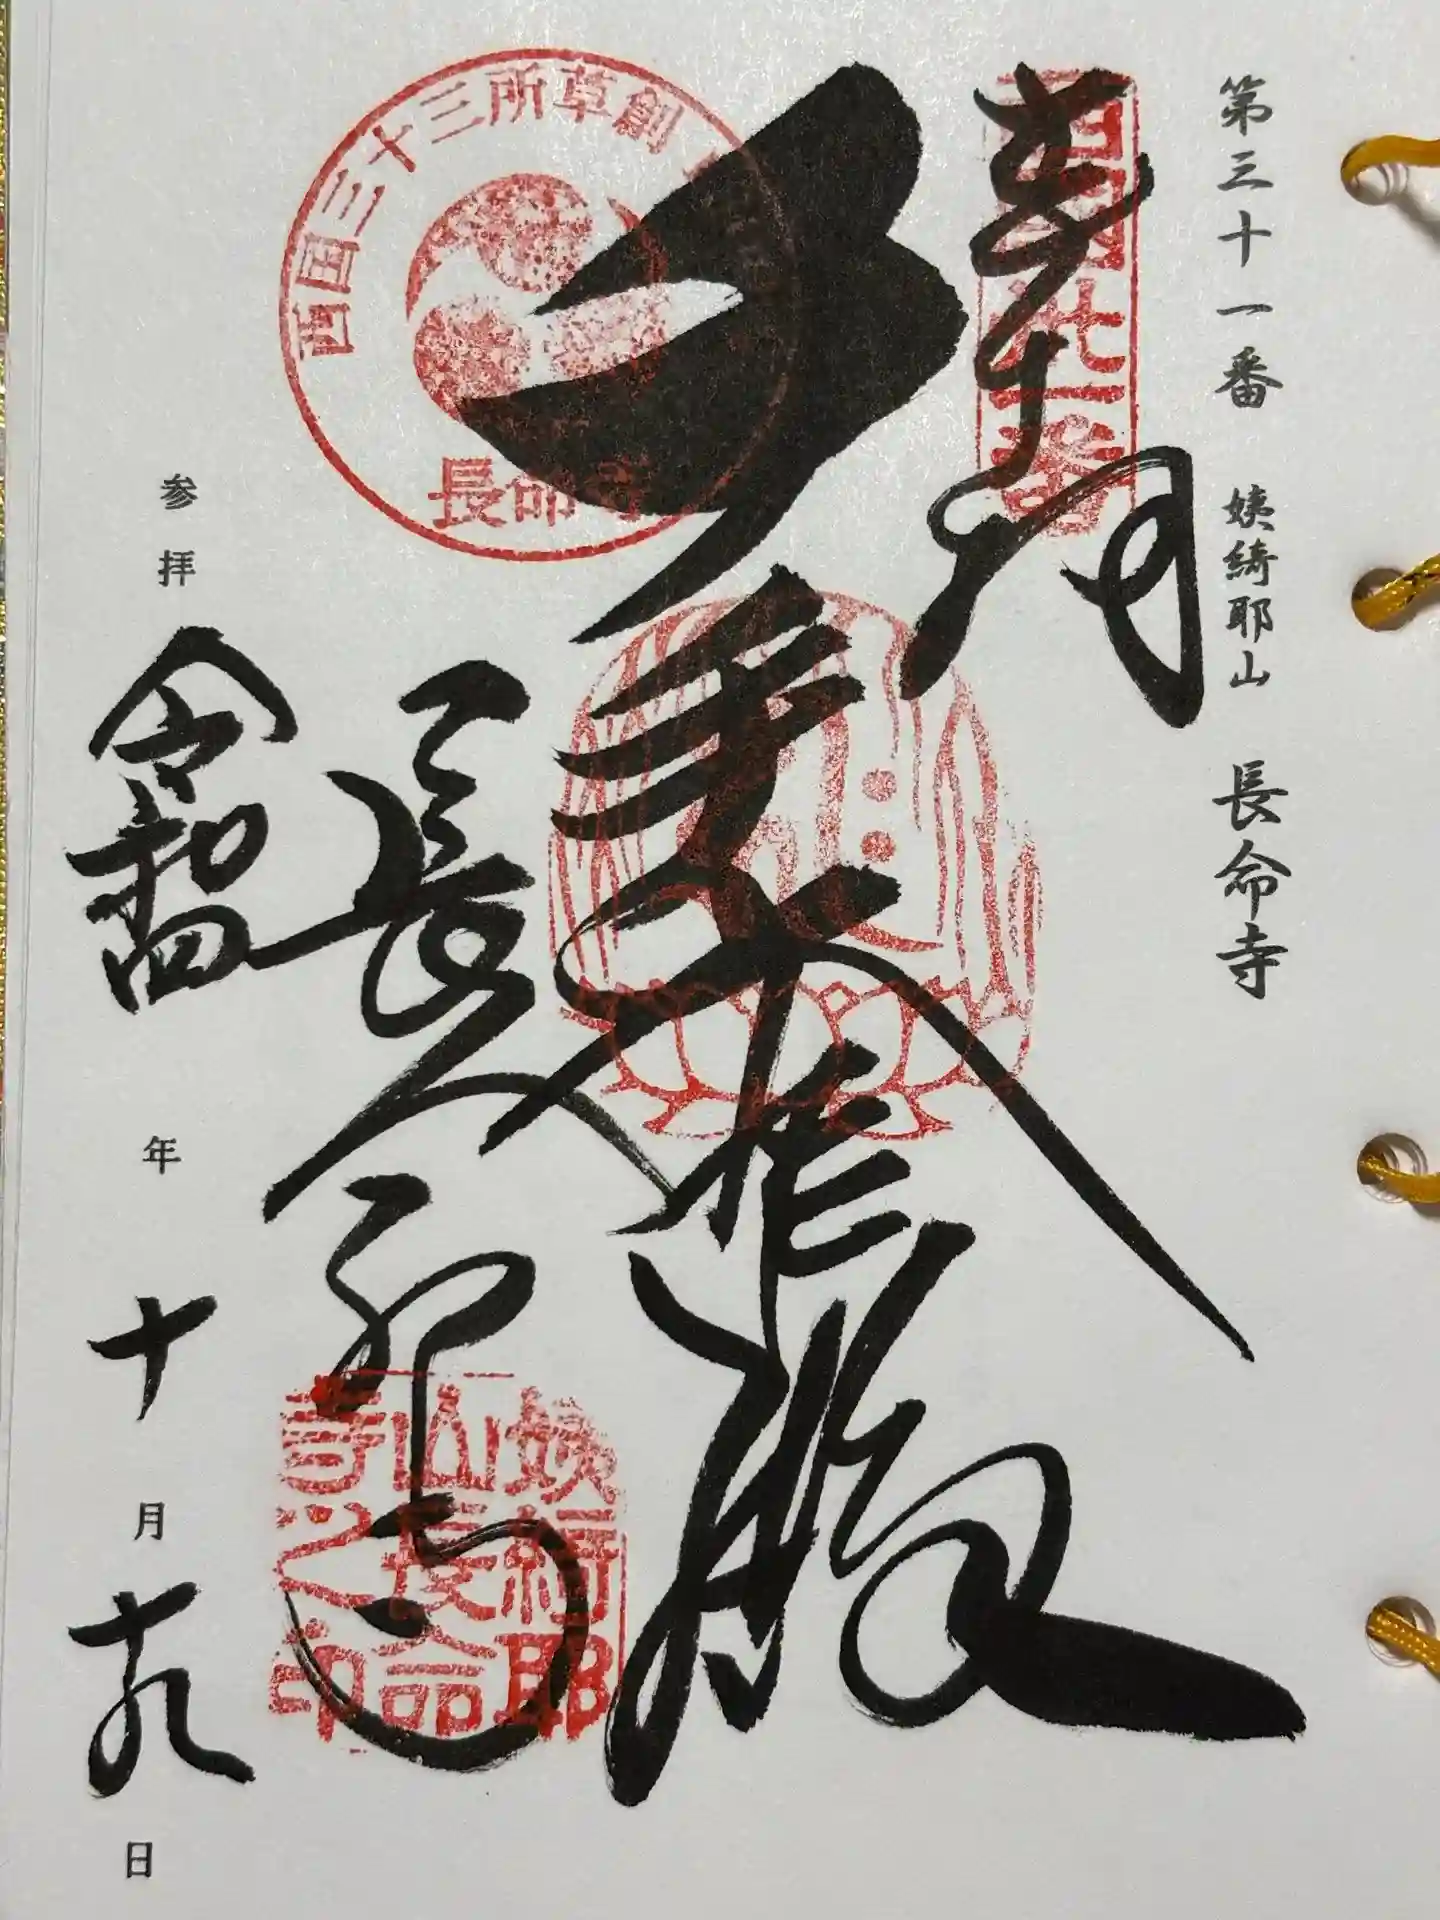 第三十一番 姨綺耶山 長命寺
奉拝
西国卅一番
千手大悲殿
西国三十三所草創
長命寺
長命寺
姨綺耶
山長命
寺之印
参拝 令和四年十月十九日